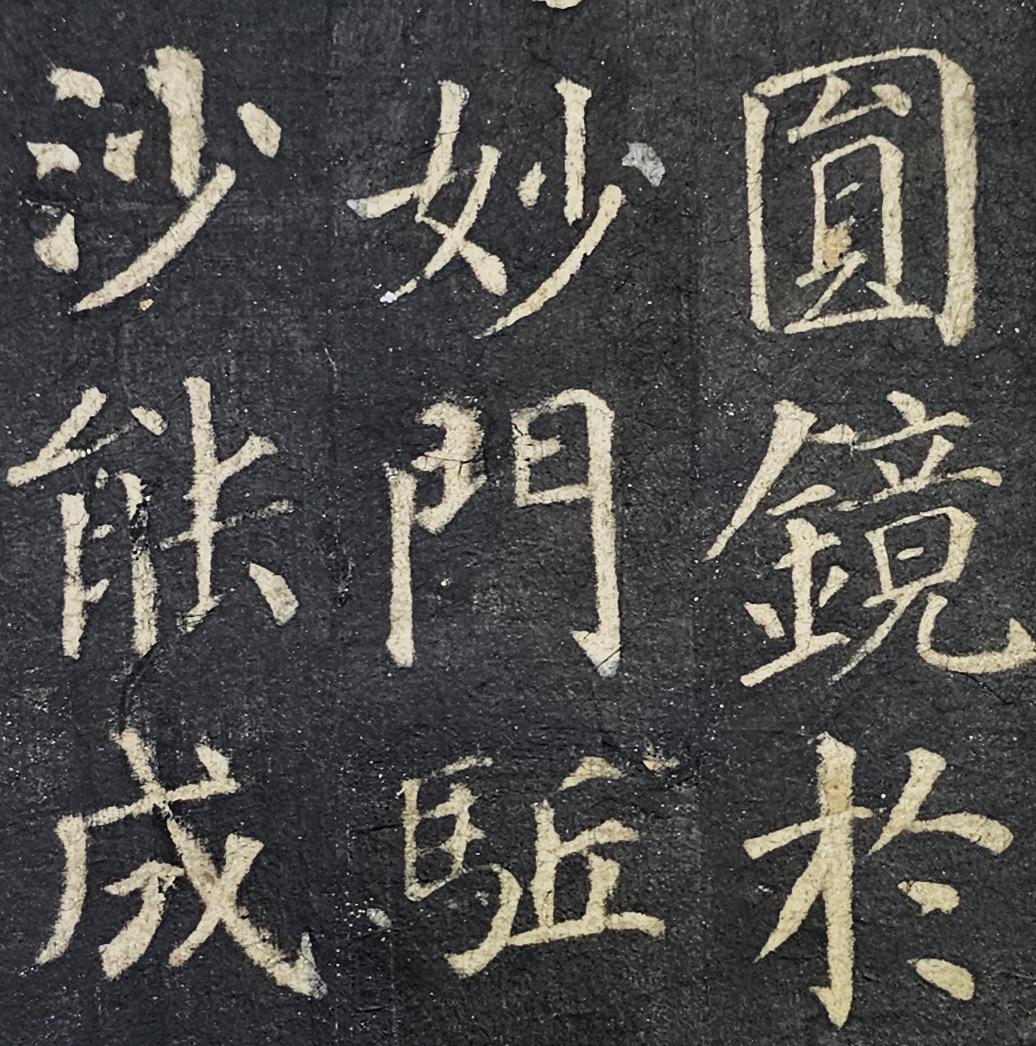 圓鏡於
妙門駈
沙能成